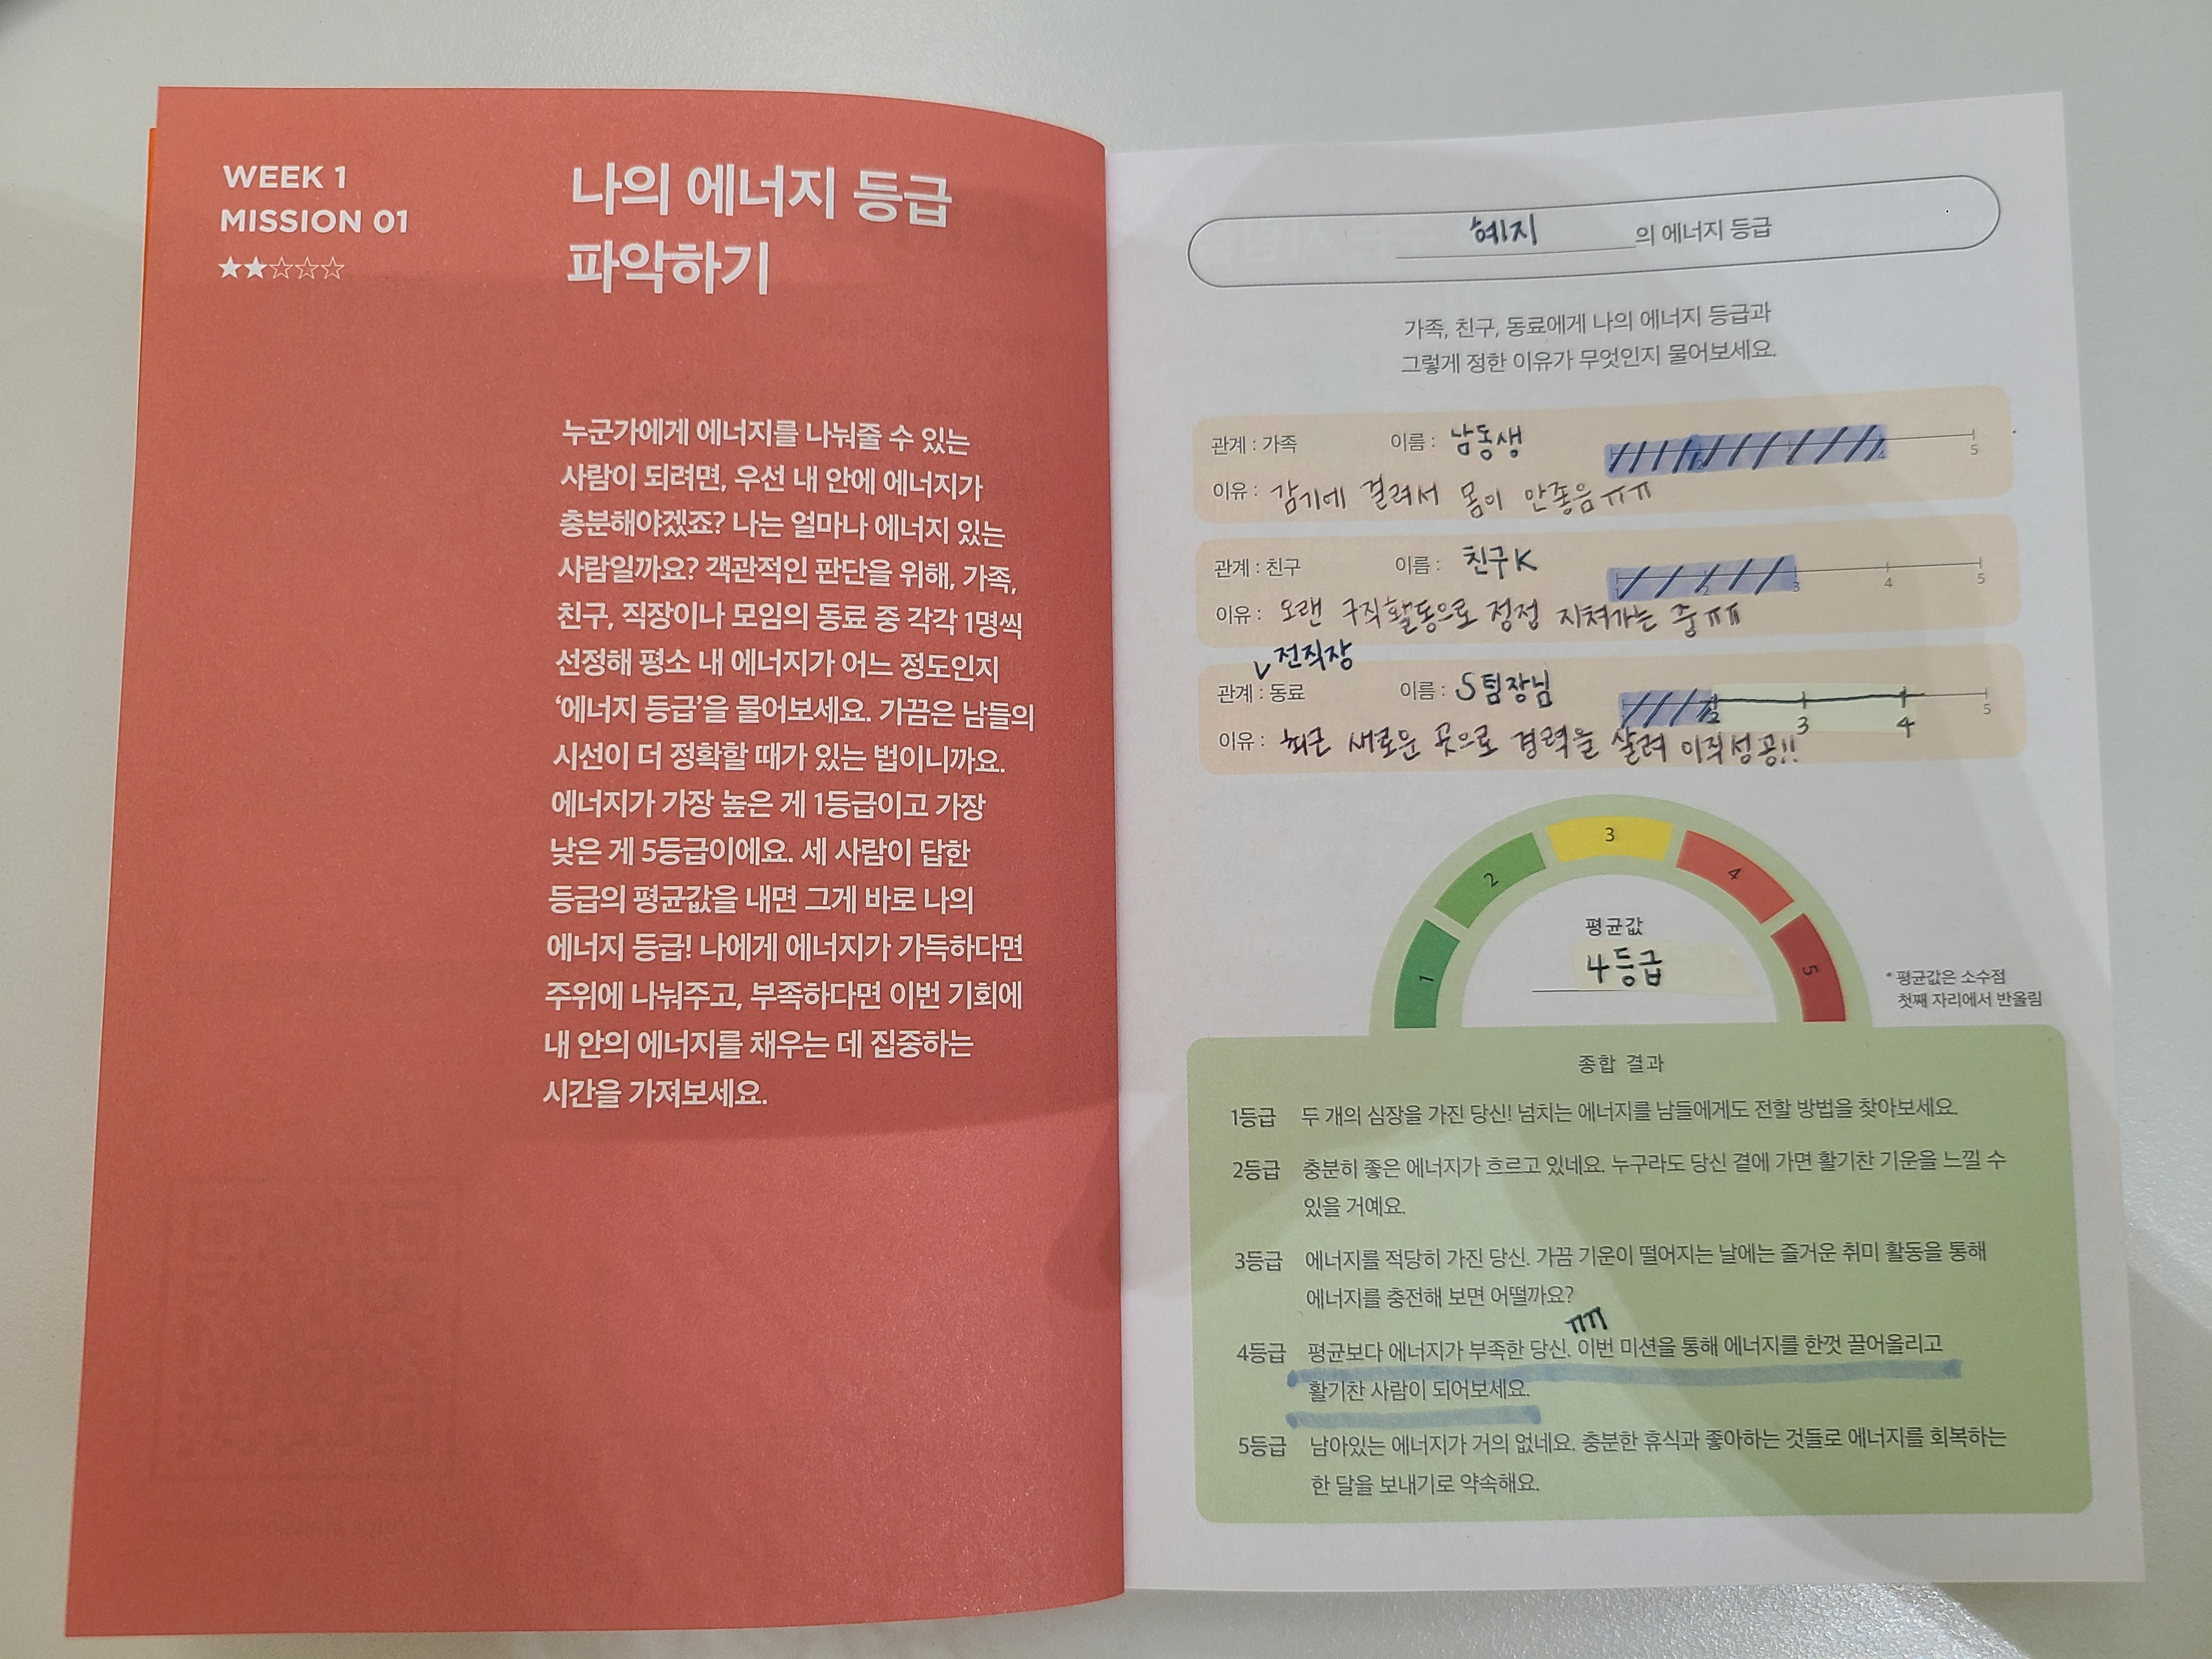 WEEK 1
MISSION 01
★★☆☆☆
나의 에너지 등급
파악하기
누군가에게 에너지를 나눠줄 수 있는
사람이 되려면, 우선 내 안에 에너지가
충분해야겠죠? 나는 얼마나 에너지 있는
사람일까요? 객관적인 판단을 위해, 가족,
친구, 직장이나 모임의 동료 중 각각 1명씩
선정해 평소 내 에너지가 어느 정도인지
‘에너지 등급’을 물어보세요. 가끔은 남들의
시선이 더 정확할 때가 있는 법이니까요.
에너지가 가장 높은 게 1등급이고 가장
낮은 게 5등급이에요. 세 사람이 답한
등급의 평균값을 내면 그게 바로 나의
에너지 등급! 나에게 에너지가 가득하다면
주위에 나눠주고, 부족하다면 이번 기회에
내 안의 에너지를 채우는 데 집중하는
시간을 가져보세요.
혜지 의 에너지 등급
가족, 친구, 동료에게 나의 에너지 등급과
그렇게 정한 이유가 무엇인지 물어보세요.
관계 : 가족 이름 : 남동생 2 4 5
이유 : 감기에 걸려서 몸이 안좋음ㅠㅠ
관계 : 친구 이름 : 친구K 1 2 3 4 5
이유 : 오랜 구직활동으로 점점 지쳐가는 중ㅠㅠ
전직장
관계 : 동료 이름 : S팀장님 1 2 5
3 4
이유 : 최근 새로운 곳으로 경력을 살려 이직성공!!
1 2 3 4 5
평균값
4등급
* 평균값은 소수점
첫째 자리에서 반올림
종합 결과
1등급 두 개의 심장을 가진 당신! 넘치는 에너지를 남들에게도 전할 방법을 찾아보세요.
2등급 충분히 좋은 에너지가 흐르고 있네요. 누구라도 당신 곁에 가면 활기찬 기운을 느낄 수
있을 거예요.
3등급 에너지를 적당히 가진 당신. 가끔 기운이 떨어지는 날에는 즐거운 취미 활동을 통해
에너지를 충전해 보면 어떨까요?
ㅠㅠ
4등급 평균보다 에너지가 부족한 당신. 이번 미션을 통해 에너지를 한껏 끌어올리고
활기찬 사람이 되어보세요.
5등급 남아있는 에너지가 거의 없네요. 충분한 휴식과 좋아하는 것들로 에너지를 회복하는
한 달을 보내기로 약속해요.